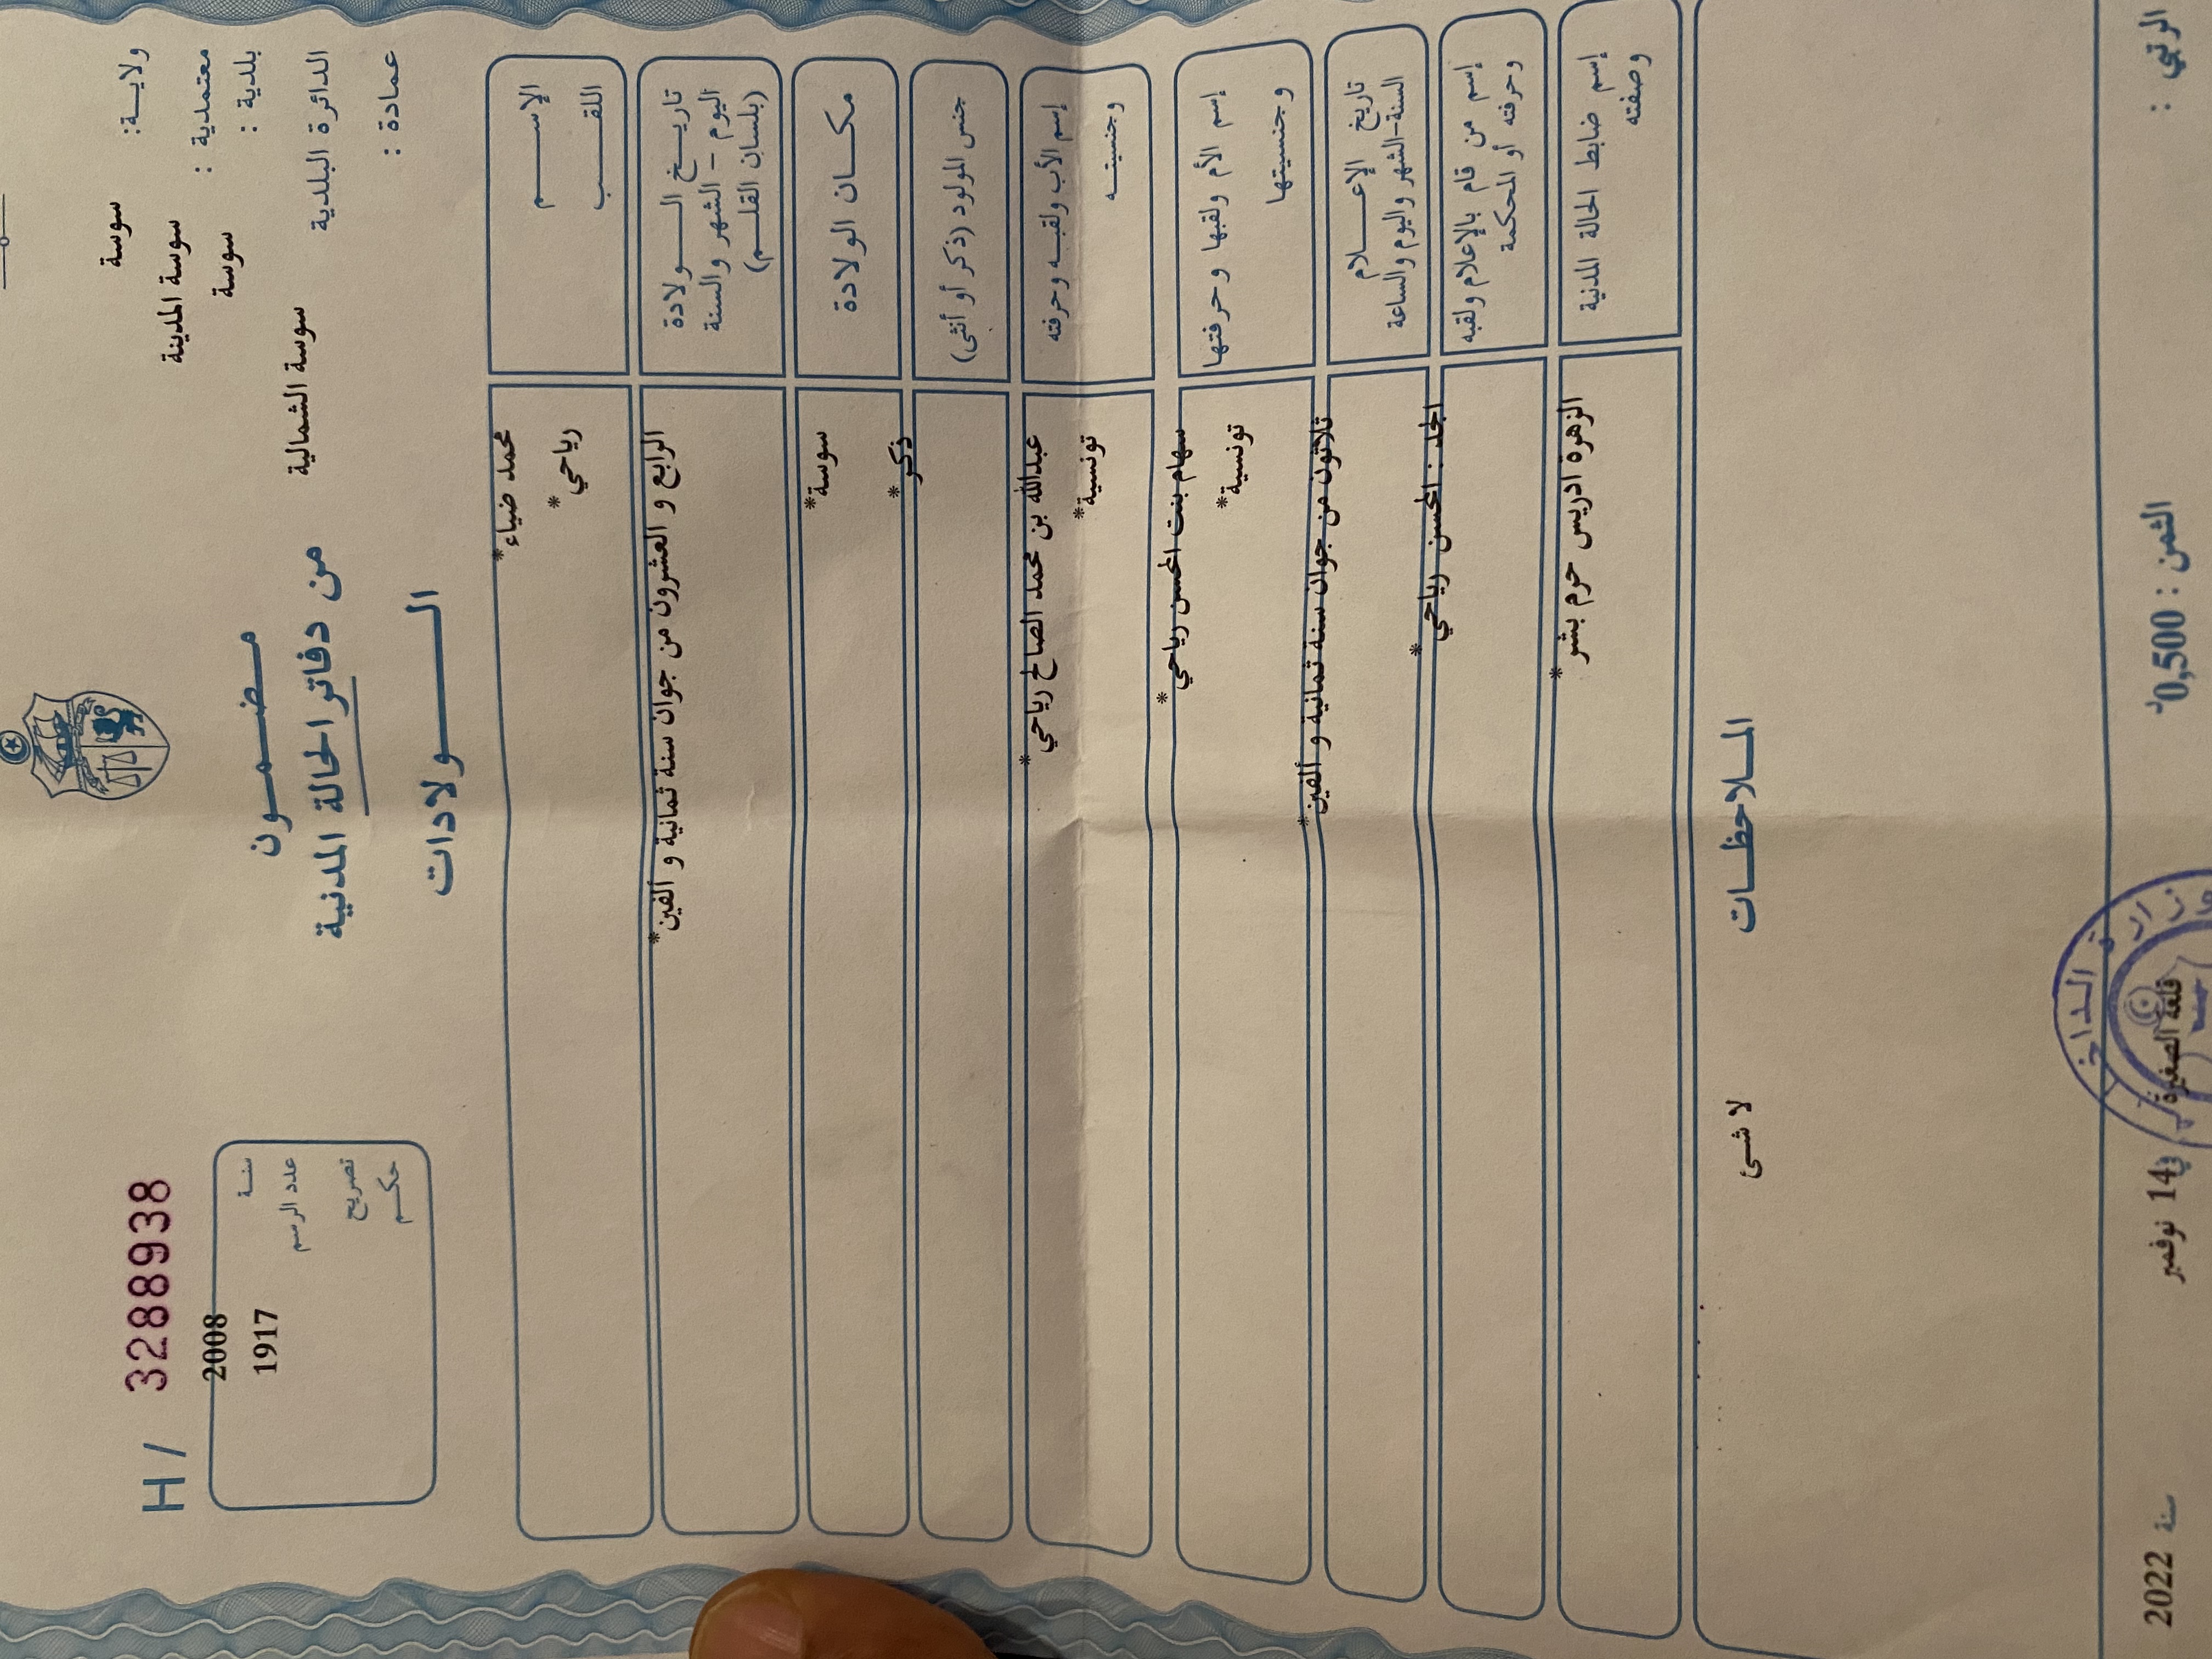 H / 3288938
ولايـة: سوسة
معتمدية : سوسة المدينة
بلدية : سوسة
الدائرة البلدية سوسة الشمالية
عمادة :
سنة 2008
عدد الرسم 1917
تصريح
حكم
مضمون
من دفاتر الحالة المدنية
الـولادات
الإسـم محمد ضياء*
اللقـب رياحي*
تاريـخ الـولادة
اليوم - الشهر والسنة
(بلسان القلـم)
الرابع و العشرون من جوان سنة ثمانية و ألفين*
مكـان الولادة سوسة*
جنس المولود (ذكر أو أنثى) ذكر*
إسم الأب ولقبـه وحرفته عبدالله بن محمد الصالح رياحي*
وجنسيتـه تونسية*
إسم الأم ولقبها وحرفتها سهام بنت الحسن رياحي*
وجنسيتها تونسية*
تاريخ الإعـلام
السنة-الشهر واليوم والساعة
ثلاثون من جوان سنة ثمانية و ألفين*
إسم من قام بالإعلام ولقبه
وحرفته أو المحكمة
الجد : الحسن رياحي*
إسم ضابط الحالة المدنية
وصفته
الزهرة ادريس حرم بشر*
المـلاحظـات
لا شئ
الثمن : 0,500د
قلعة الصغيرة في 14 نوفمبر سنة 2022